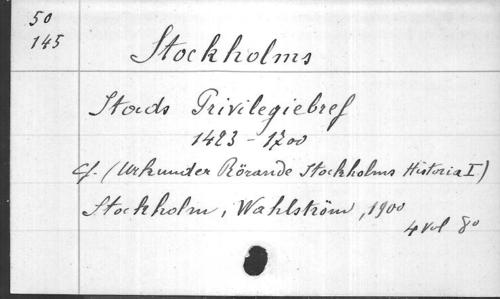 50
145
Stockholms
Stads Privilegiebref
1423 - 1700
cf. (Urkunder Rörande Stockholms Historia I)
Stockholm, Wahlström, 1900
4 vol 8o